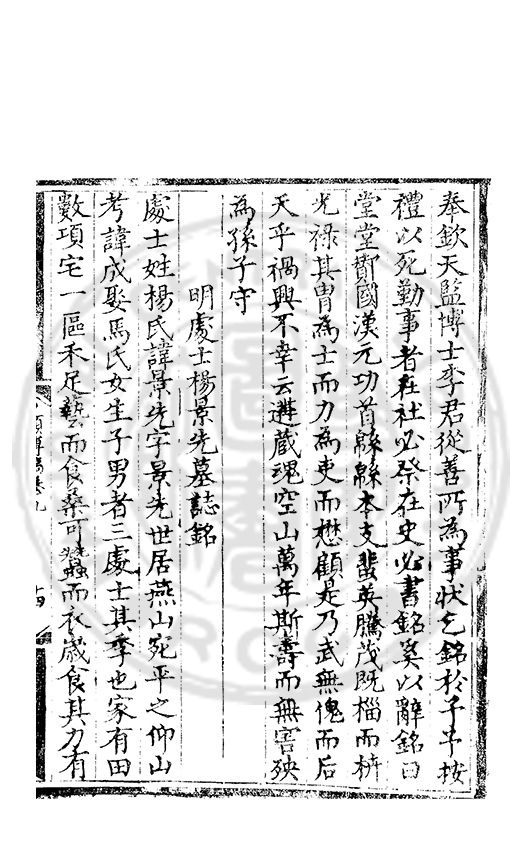 奉欽天監博士李君從善所為事狀乞銘於予予按
禮以死勤事者在社必祭在史必書銘奚以辭銘曰
堂堂酇國漢元功首緜緜本支蜚英騰茂既榴而枿
光祿其冑為士而力為吏而懋顧是乃武無愧而后
天乎禍興不幸云遘蔵魂空山萬年斯壽而無害殃
為孫子守
明處士楊景先墓誌銘
處士姓楊氏諱景先字景先世居燕山宛平之仰山
考諱成娶馬氏女生子男者三處士其季也家有田
數項宅一區禾足藝而食桑可蠶而衣歲食其力有